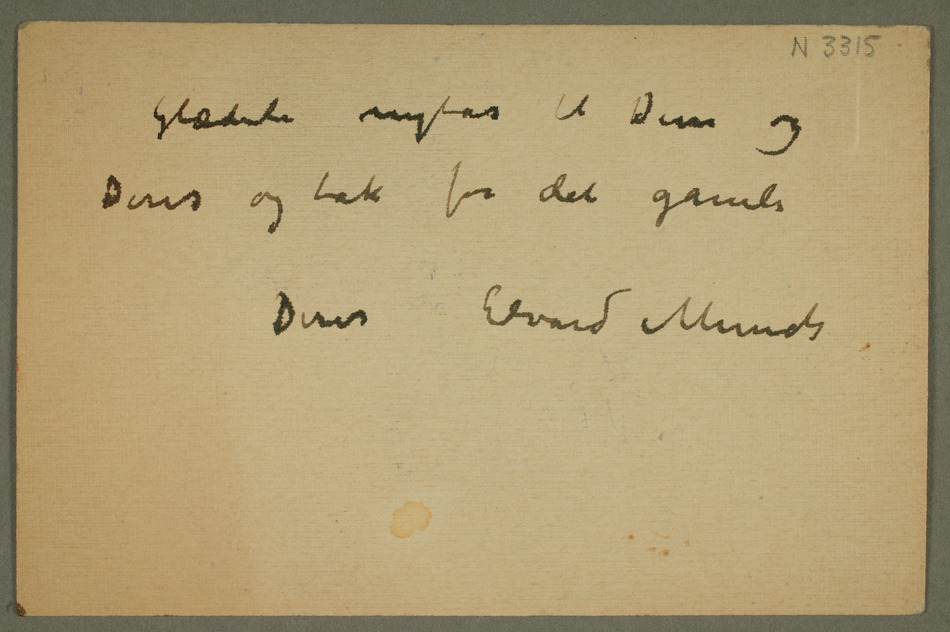 N 3315
Glædeli nytår til Dem og
Deres og tak for det gamle
Deres Edvard Munch